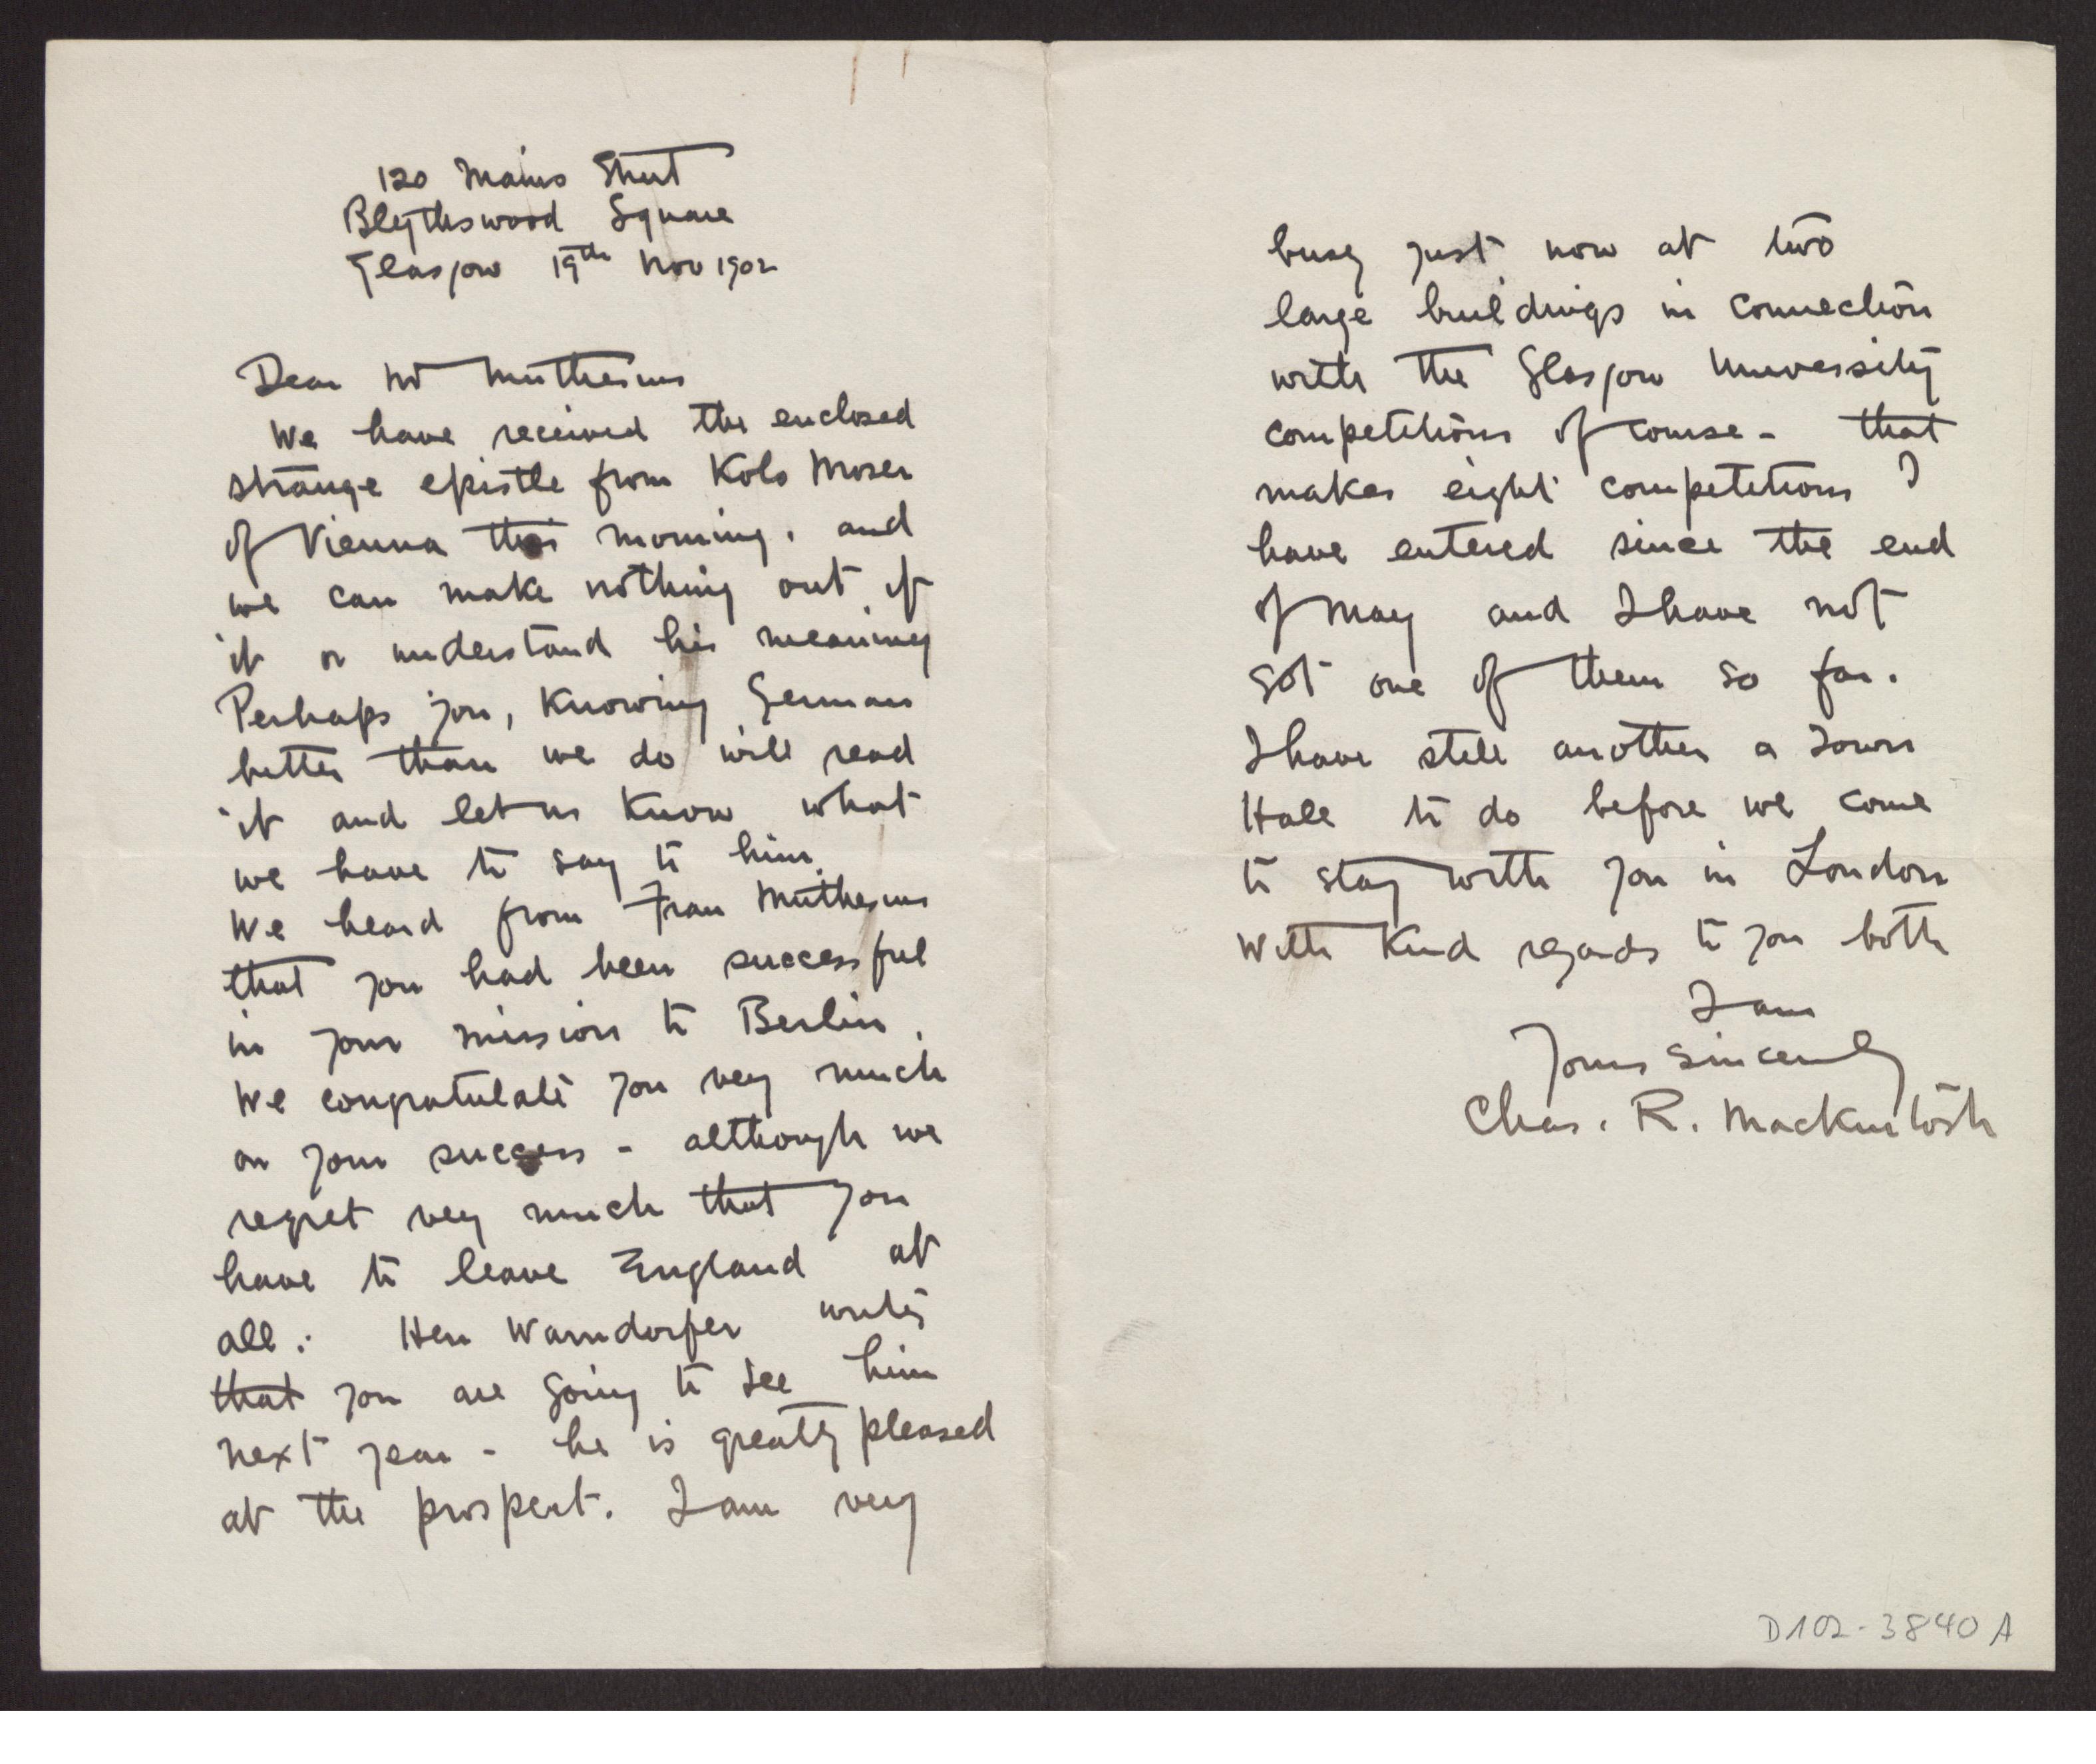 120 Mains Street
Blythswood Square
Glasgow 19th Nov 1902
Dear Mr Muthesius
We have received the enclosed
strange epistle from Kolo Moser
of Vienna this morning. and
we can make nothing out of
it or understand his meaning
Perhaps you, knowing German
better than we do will read
it and let us know what
we have to say to him.
We heard from Frau Muthesius
that you had been successful
in your mission to Berlin.
We congratulate you very much
on your success - although we
regret very much that you
have to leave England at
all. Herr Warndorfer writes
that you are going to see him
next year - he is greatly pleased
at the prospect. I am very
busy just now at two
large buildings in connection
with the Glasgow University
competitions of course - that
makes eight competitions I
have entered since the end
of May and I have not
got one of them so far.
I have still another a Town
Hall to do before we come
to stay with you in London
With kind regards to you both
I am
Yours sincerely
Chas. R. Mackintosh
D102-3840 A